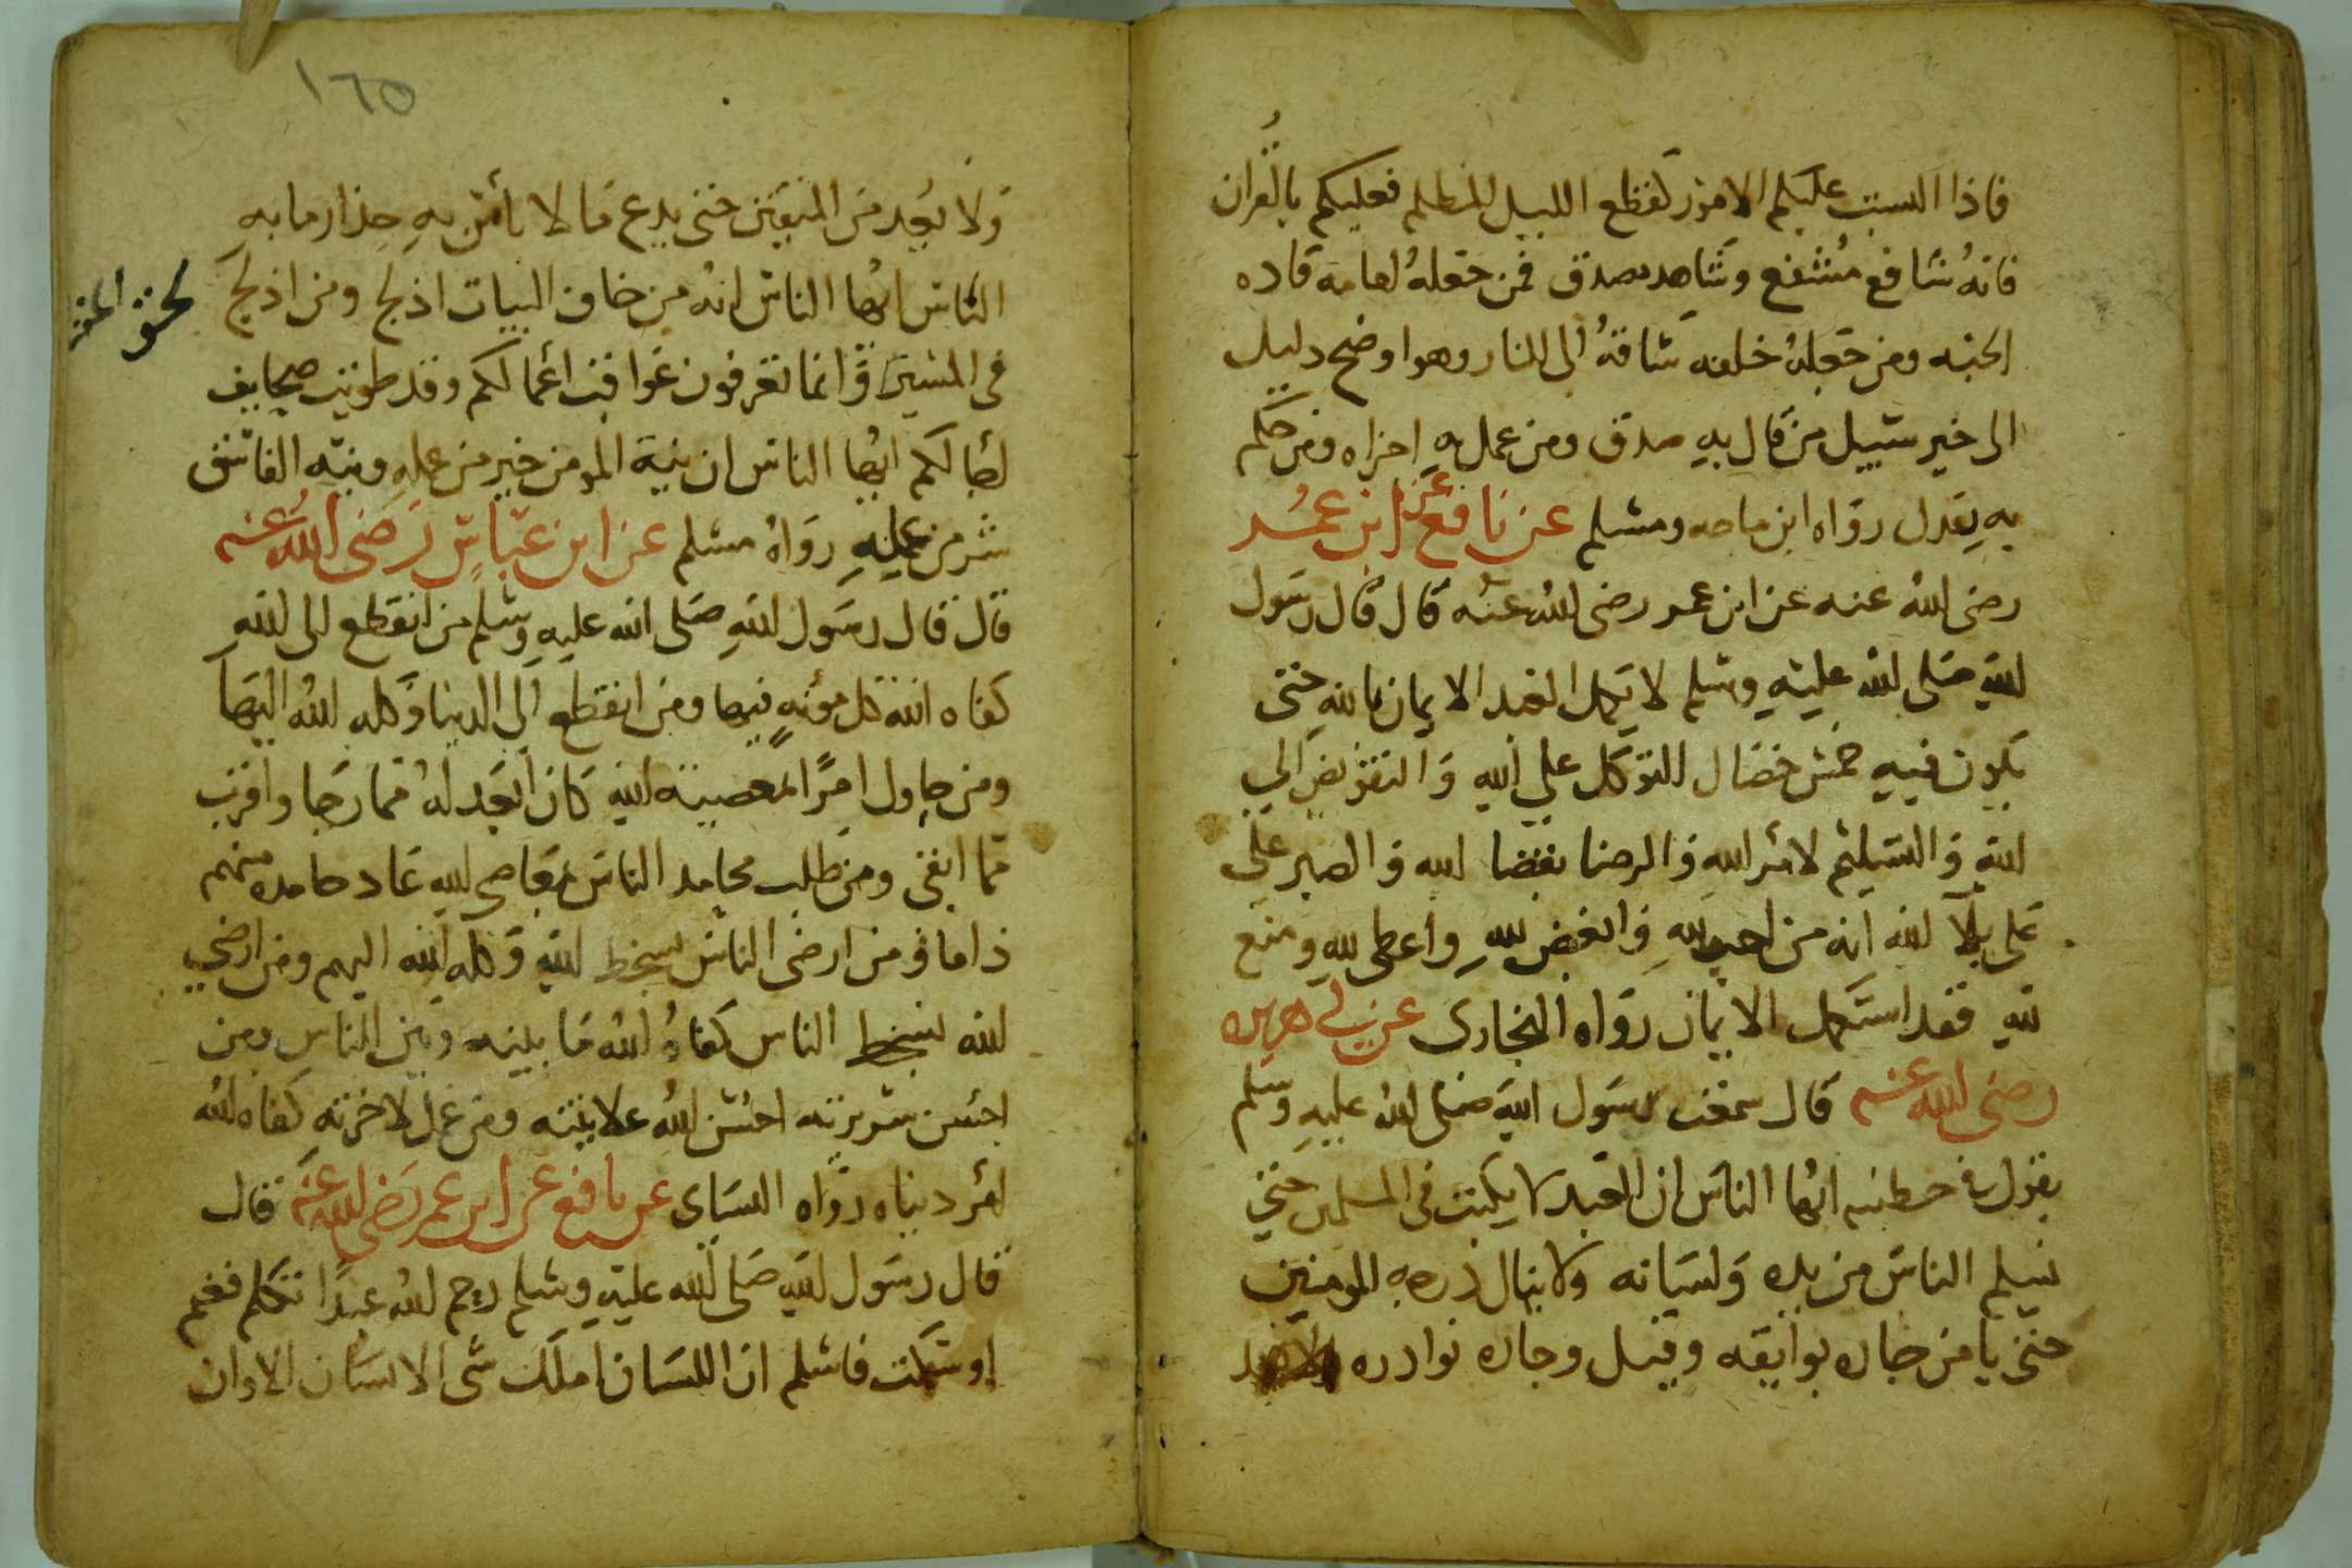 فاذا التبست عليكم الامور كقطع الليل المظلم فعليكم بالقران
فانه شافع مشفع وشاهد مصدق فمن جعله امامه قاده
الجنه ومن جعله خلفه ساقه الى النار وهو اوضح دليل
الى خير سبيل من قال به صدق ومن عمل به اجراه ومن حكم
به يعدل رواه ابن ماجه ومسلم عن نافع عن ابن عمر
رضى الله عنه عن ابن عمر رضى الله عنه قال قال رسول
الله صلى الله عليه وسلم لا يكمل العبد الايمان بالله حتى
يكون فيه خمس خصال التوكل على الله والتفويض الى
الله والتسليم لامر الله والرضا بقضا الله والصبر على
على بلآ الله انه من احب لله وابغض لله واعطى لله ومنع
لله فقد استكمل الايمان رواه البخارى عن ابى هريره
رضى الله عنه قال سمعت رسول الله صلى الله عليه وسلم
يقول فى خطبته ايها الناس ان العبد لا يكتب فى المسلمين حتى
يسلم الناس من يده ولسانه ولا ينال درجه المومنين
حتى يامن جاره بوايقه وقيل وجاره نوادره
١٦٥
ولا يعد من المتقين حتى يدع ما لا بأس به حذار ما به
الباس ايها الناس انه من خاف البيات ادلج ومن ادلج
فى المسير وانما تعرفون عواقب اعمالكم وقد طويت صحايف
اجالكم ايها الناس ان نية المومن خير من عمله ونيته الفاسق
شر من عمله رواه مسلم عن ابن عباس رضى الله عنه
قال قال رسول الله صلى الله عليه وسلم من انقطع الى الله
كفاه الله كل مؤنه فيها ومن انقطع الى الدنيا وكله الله اليها
ومن حاول امرًا لمعصية الله كان ابعد له مما رجا واقرب
مما اتقى ومن طلب محامد الناس بمعاصى الله عاد حامده منهم
ذاما ومن ارضى الناس بسخط الله وكله الله اليهم ومن ارضى
الله بسخط الناس كفاه الله ما بينه وبين الناس ومن
احسن سريرته احسن الله علانيته ومن عمل لاخرته كفاه الله
امر دنياه رواه النساى عن نافع عن ابن عمر رضى الله عنه قال
قال رسول الله صلى الله عليه وسلم رحم الله عبدًا تكلم فغنم
او سكت فاسلم ان اللسان املك شى الانسان الا وان